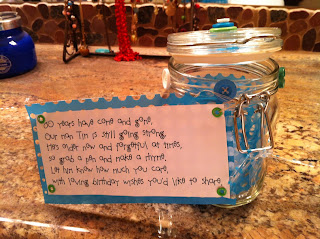 years have come and gone,
Our man Tim is still going strong,
He's older now and forgetful at times,
so grab a pen and make a rhyme,
Let him know how much you care,
with loving birthday wishes you'd like to share